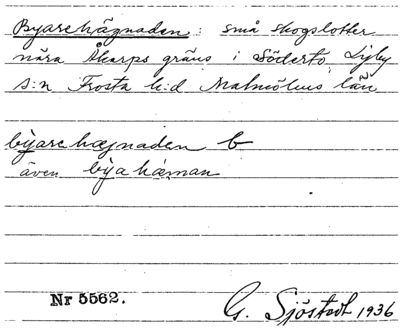 Byarehägnaden: små skogslotter
nära Åkarps gräns i Södertö,
s:n Frosta h:d Malmöhus län
bỳarehæjnaden b
även bỳahæ̀man
Nr 5562. G. Sjöstedt 1936